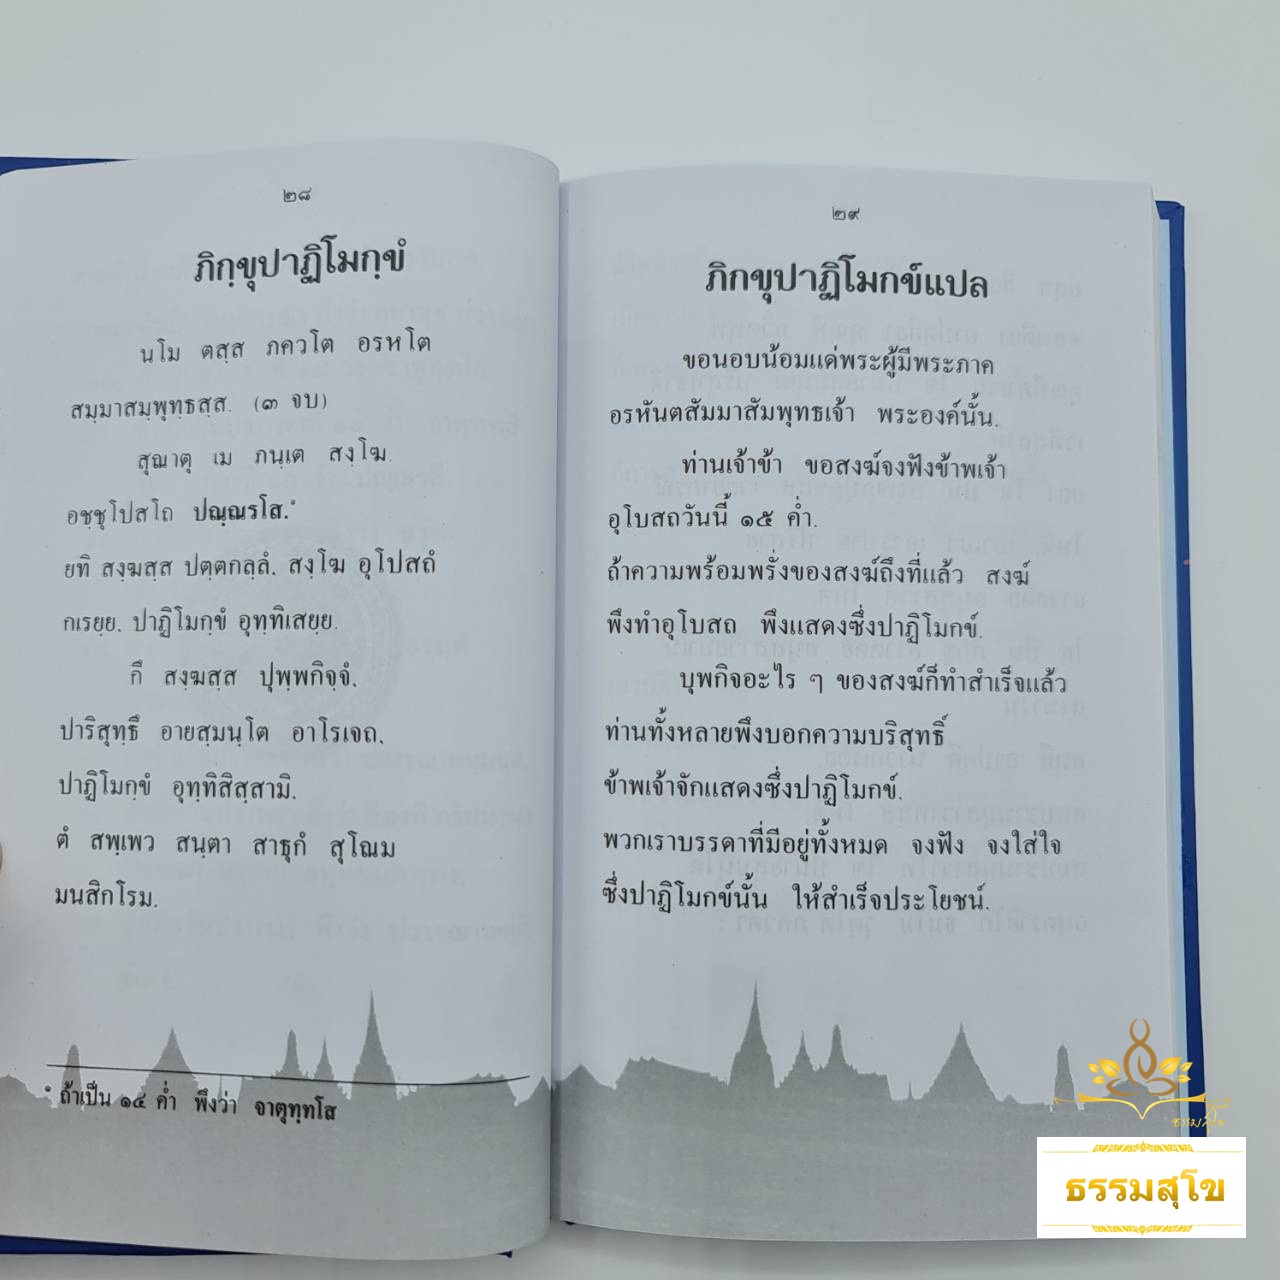 ๒๘
ภิกฺขุปาฏิโมกฺขํ
นโม ตสฺส ภควโต อรหโต
สมฺมาสมฺพุทฺธสฺส. (๓ จบ)
สุณาตุ เม ภนฺเต สงฺโฆ.
อชฺชุโปสโถ ปณฺณรโส.๑
ยทิ สงฺฆสฺส ปตฺตกลฺลํ, สงฺโฆ อุโปสถํ
กเรยฺย, ปาฏิโมกฺขํ อุทฺทิเสยฺย.
กึ สงฺฆสฺส ปุพฺพกิจฺจํ,
ปาริสุทฺธึ อายสฺมนฺโต อาโรเจถ,
ปาฏิโมกฺขํ อุทฺทิสิสฺสามิ.
ตํ สพฺเพว สนฺตา สาธุกํ สุโณม
มนสิกโรม.
๑ ถ้าเป็น ๑๔ ค่ำ พึงว่า จาตุทฺทโส
๒๙
ภิกขุปาฏิโมกข์แปล
ขอนอบน้อมแด่พระผู้มีพระภาค
อรหันตสัมมาสัมพุทธเจ้า พระองค์นั้น.
ท่านเจ้าข้า ขอสงฆ์จงฟังข้าพเจ้า
อุโบสถวันนี้ ๑๕ ค่ำ.
ถ้าความพร้อมพรั่งของสงฆ์ถึงที่แล้ว สงฆ์
พึงทำอุโบสถ พึงแสดงซึ่งปาฏิโมกข์.
บุพกิจอะไร ๆ ของสงฆ์ก็ทำสำเร็จแล้ว
ท่านทั้งหลายพึงบอกความบริสุทธิ์
ข้าพเจ้าจักแสดงซึ่งปาฏิโมกข์.
พวกเราบรรดาที่มีอยู่ทั้งหมด จงฟัง จงใส่ใจ
ซึ่งปาฏิโมกข์นั้น ให้สำเร็จประโยชน์.
ธรรมสุโข
ธรรมสุโข